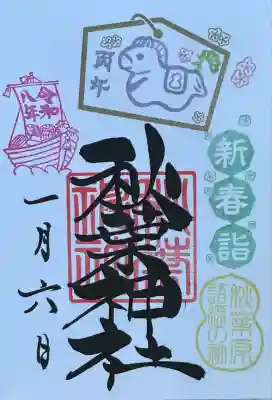 丙午
令和
八年
新春詣
秋葉神社
一月六日
秋葉原